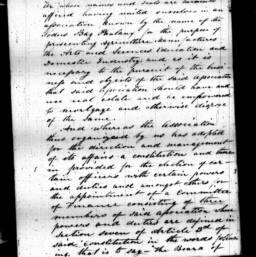 We whose names and seals are
affixed having united ourselves in an
association known by the name of the
Sodus Bay Phalanx for the purpose of
prosecuting Agriculture Manufactures
the Arts and Sciences Education and
Domestic Industry and as it is
necessary to the pursuit of the
and objects of the said Association
that said Association should have and
use real estate and be empowered
to mortgage and otherwise dispose
of the same.
And whereas the Association
thus organized by us has adopted
for the direction and management
of its affairs a constitution and
is provided for the election of cer
tain officers with certain powers
and duties and amongst others
the appointment of a Committee
of Finance consisting of three
members of said association whose
powers and duties are defined in
section seven of Article 5th of
said Constitution in the words
that is to say The Board of